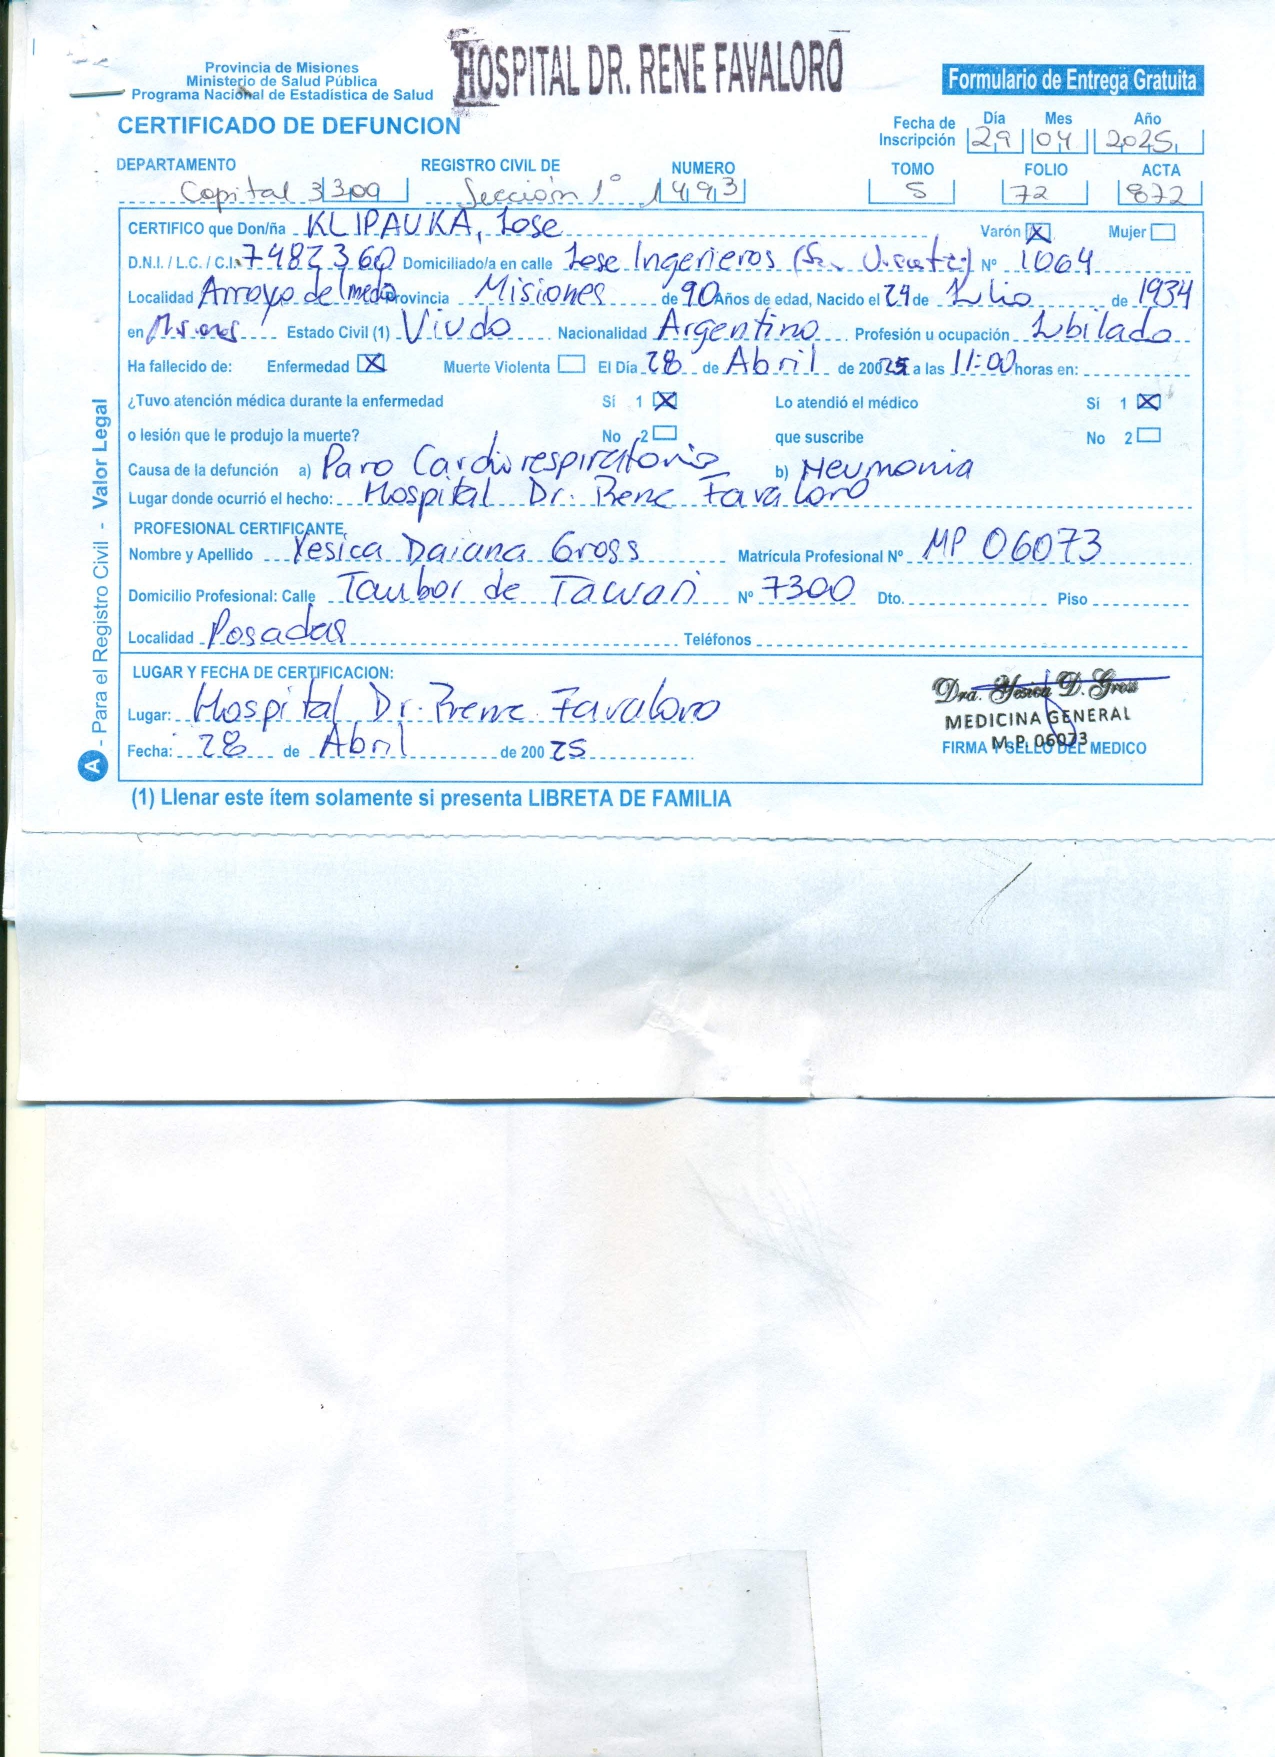 HOSPITAL DR. RENE FAVALORO
Provincia de Misiones
Ministerio de Salud Pública
Programa Nacional de Estadística de Salud
Formulario de Entrega Gratuita
CERTIFICADO DE DEFUNCION
Fecha de Inscripción Día 29 Mes 04 Año 2025
DEPARTAMENTO REGISTRO CIVIL DE NUMERO TOMO FOLIO ACTA
Capital 3 309 Sección 1° 1493 5 72 872
CERTIFICO que Don/ña KLIPAUKA, Jose Varón X Mujer
D.N.I. / L.C. / C.I. 7482360 Domiciliado/a en calle Jose Ingenieros Nº 1064
Localidad Arroyo del medio Provincia Misiones de 90 Años de edad, Nacido el 24 de Julio de 1934
en Misiones Estado Civil (1) Viudo Nacionalidad Argentino Profesión u ocupación Jubilado
Ha fallecido de: Enfermedad X Muerte Violenta El Día 28 de Abril de 20025 a las 11:00 horas en:
¿Tuvo atención médica durante la enfermedad Sí 1 X Lo atendió el médico Si 1 X
o lesión que le produjo la muerte? No 2 que suscribe No 2
Causa de la defunción a) Paro Cardiorespiratorio b) Neumonia
Lugar donde ocurrió el hecho: Hospital Dr. Rene Favaloro
PROFESIONAL CERTIFICANTE,
Nombre y Apellido Yesica Daiana Gross Matrícula Profesional Nº MP 06073
Domicilio Profesional: Calle Tambor de Nº 7300 Dto. Piso
Localidad Posadas Teléfonos
LUGAR Y FECHA DE CERTIFICACION:
Lugar: Hospital Dr. Rene Favaloro
Fecha: 28 de Abril de 200 25
Dra. Yesica D. Gross
MEDICINA GENERAL
M.P. 06073
FIRMA Y SELLO DEL MEDICO
(1) Llenar este ítem solamente si presenta LIBRETA DE FAMILIA
A - Para el Registro Civil - Valor Legal